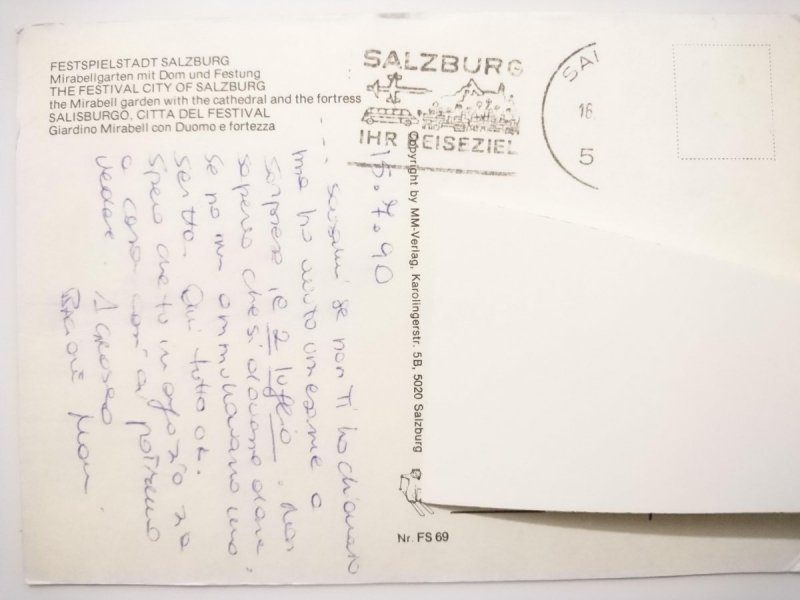 FESTSPIELSTADT SALZBURG
Mirabellgarten mit Dom und Festung
THE FESTIVAL CITY OF SALZBURG
the Mirabell garden with the cathedral and the fortress
SALISBURGO, CITTA DEL FESTIVAL
Giardino Mirabell con Duomo e fortezza
SALZBURG
IHR REISEZIEL
SAL
16
5
15.7.90
... scusami se non Ti ho chiamato
ma ho avuto un esame a
sorpresa il 2 luglio. Non
sapevo che si dovesse dare,
se no mi
scritta. Qui tutto ok.
Spero che tu in agosto sia
a casa così ci potremo
vedere. 1 grosso
Copyright by MM-Verlag, Karolingerstr. 5B, 5020 Salzburg
Nr. FS 69